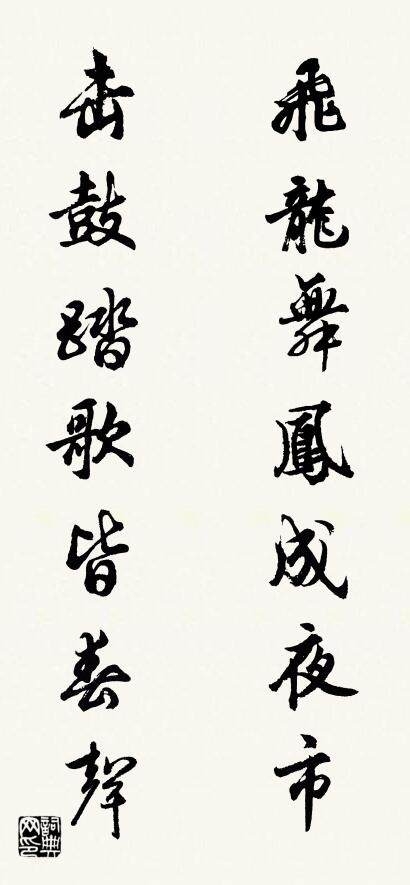 飛龍舞鳳成夜市
击鼓踏歌皆春聲
詞典網印